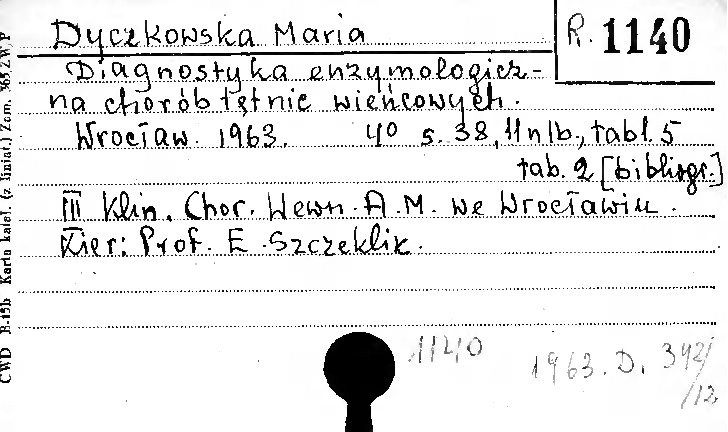 Dyczkowska Maria
R. 1140
Diagnostyka enzymologicz-
na chorób tętnic wieńcowych.
Wrocław. 1963. 4º s. 38, 11nlb., tabl. 5
tab. 2 [bibliogr.]
III Klin. Chor. Wewn. A.M. we Wrocławiu.
Kier: Prof. E. Szczeklik.
1140
1963. D. 392/
/12
CWD B-15b Karta katal. (z liniat.) Zam. 365 ZW P